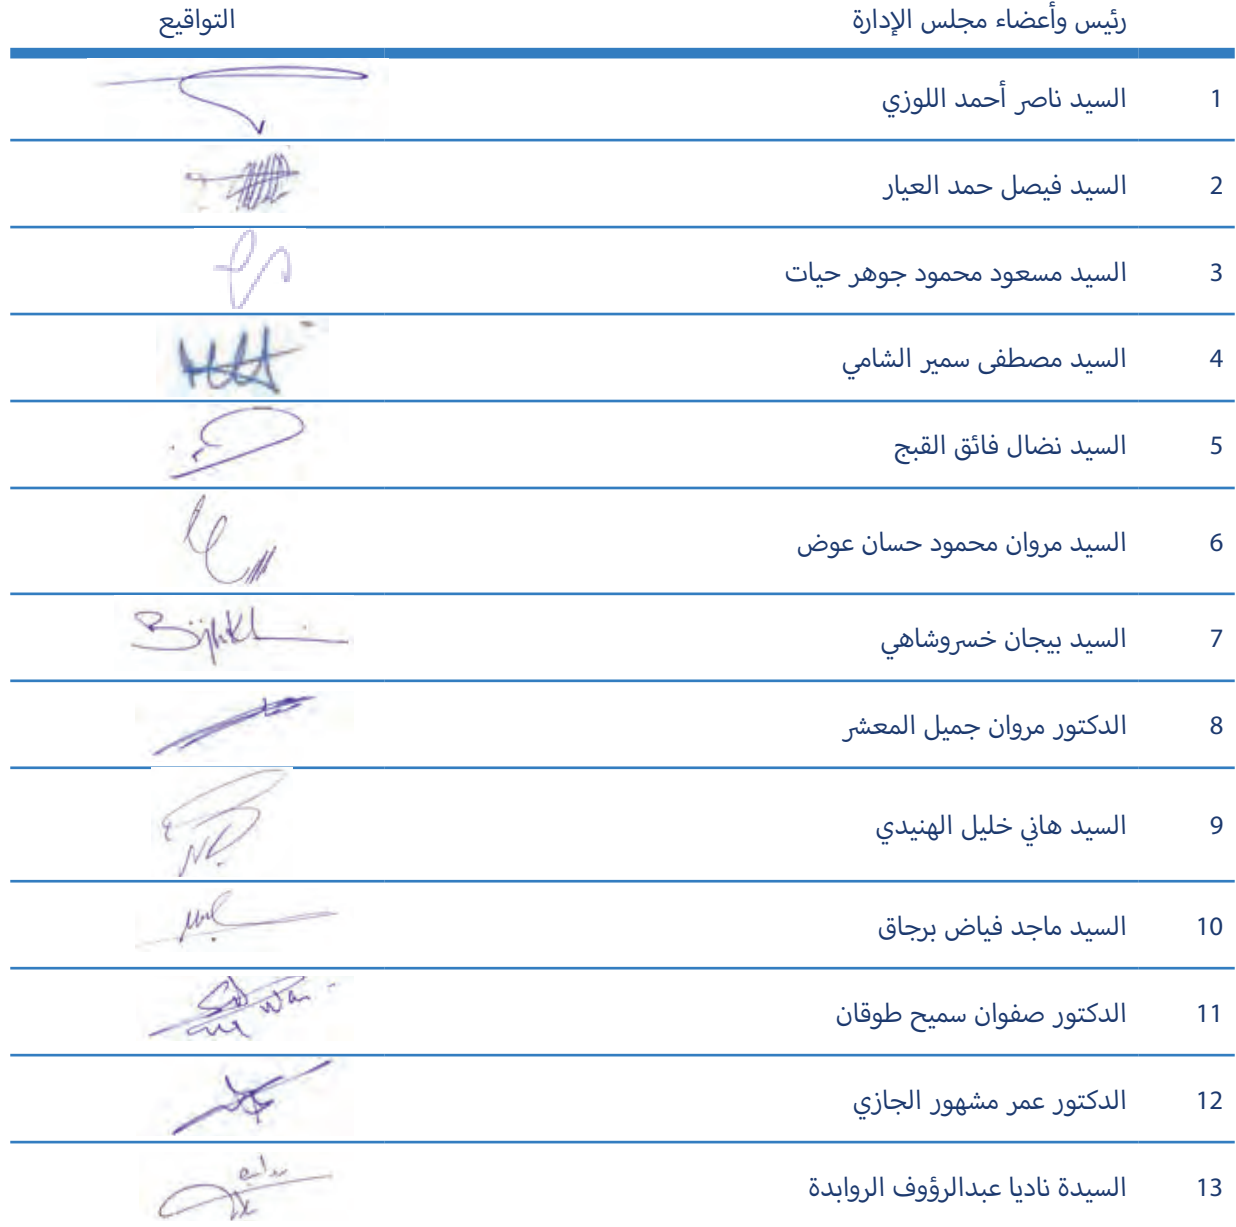 رئيس وأعضاء مجلس الإدارة التواقيع
1 السيد ناصر أحمد اللوزي
2 السيد فيصل حمد العيار
3 السيد مسعود محمود جوهر حيات
4 السيد مصطفى سمير الشامي
5 السيد نضال فائق القبج
6 السيد مروان محمود حسان عوض
7 السيد بيجان خسروشاهي
8 الدكتور مروان جميل المعشر
9 السيد هاني خليل الهنيدي
10 السيد ماجد فياض برجاق
11 الدكتور صفوان سميح طوقان
12 الدكتور عمر مشهور الجازي
13 السيدة ناديا عبدالرؤوف الروابدة